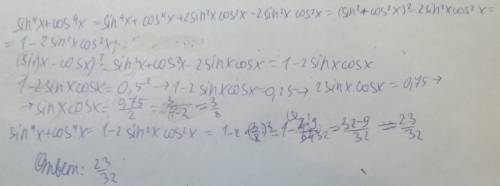 sin⁴x+cos⁴x = sin⁴x+cos⁴x+2sin²x cos²x-2sin²x cos²x=(sin²+cos²x)²-2sin²x cos²x=
=1-2sin²x cos²x;
(sinx-cosx)²=sin²x+cos²x-2sinx cosx=1-2sinx cosx
1-2sinx cosx=0,5²→1-2sinx cosx=0,25→2sinx cosx=0,75→
→sinx cosx=0,75/2=3/4·2=3/8
sin⁴x+cos⁴x=1-2sin²x cos²x=1-2·(3/8)²=1-9/32=32-9/32=23/32
Ответ: 23/32